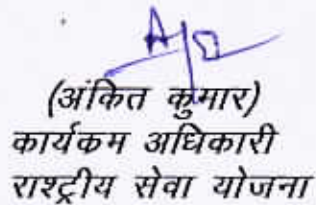 (अंकित कुमार)
कार्यकम अधिकारी
राश्ट्रीय सेवा योजना